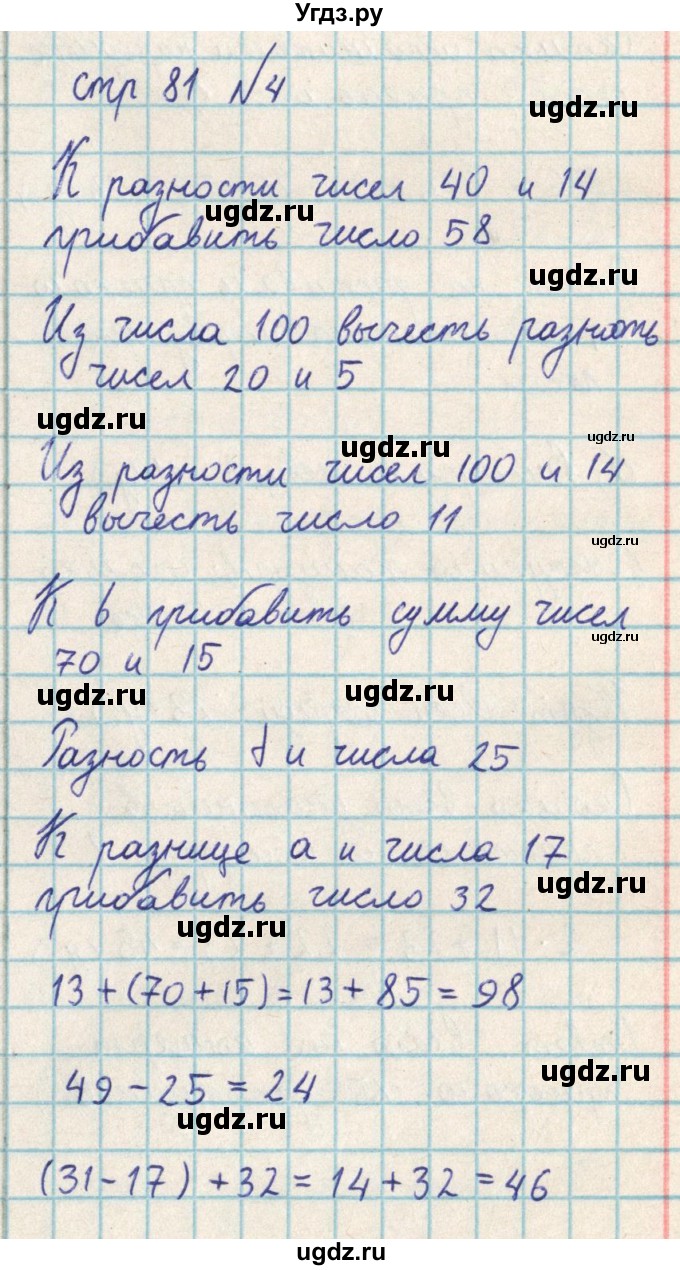 Угдз.ру
стр 81 №4
ugdz.ru
К разности чисел 40 и 14
ugdz.ru
прибавить число 58
ugdz.ru
Из числа 100 вычесть разность
чисел 20 и 5
ugdz.ru
ugdz.ru
ugdz.ru
Из разности чисел 100 и 14
вычесть число 11
ugdz.ru
К b прибавить сумму чисел
ugdz.ru
70 и 15
ugdz.ru
ugdz.ru
Разность d и числа 25
К разнице a и числа 17
ugdz.ru
прибавить число 32
ugdz.ru
13 + (70 + 15) = 13 + 85 = 98
ugdz.ru
49 - 25 = 24
ugdz.ru
(31 - 17) + 32 = 14 + 32 = 46
ugdz.ru